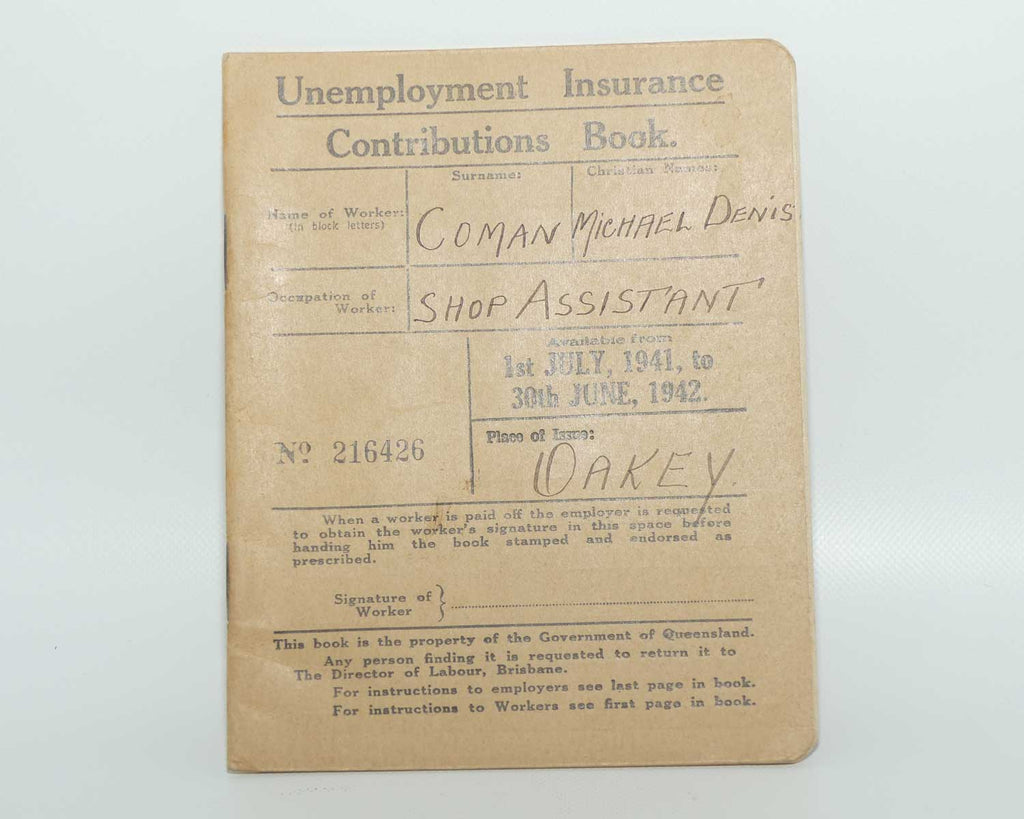 Unemployment Insurance
Contributions Book.
Surname: Christian Names:
Name of Worker:
(in block letters)
COMAN MICHAEL DENIS
Occupation of
Worker:
SHOP ASSISTANT
Available from
1st JULY, 1941, to
30th JUNE, 1942.
Nº 216426
Place of Issue:
OAKEY.
When a worker is paid off the employer is requested
to obtain the worker's signature in this space before
handing him the book stamped and endorsed as
prescribed.
Signature of
Worker
This book is the property of the Government of Queensland.
Any person finding it is requested to return it to
The Director of Labour, Brisbane.
For instructions to employers see last page in book.
For instructions to Workers see first page in book.